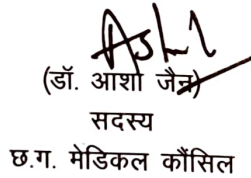 (डॉ. आशा जैन)
सदस्य
छ.ग. मेडिकल कौंसिल